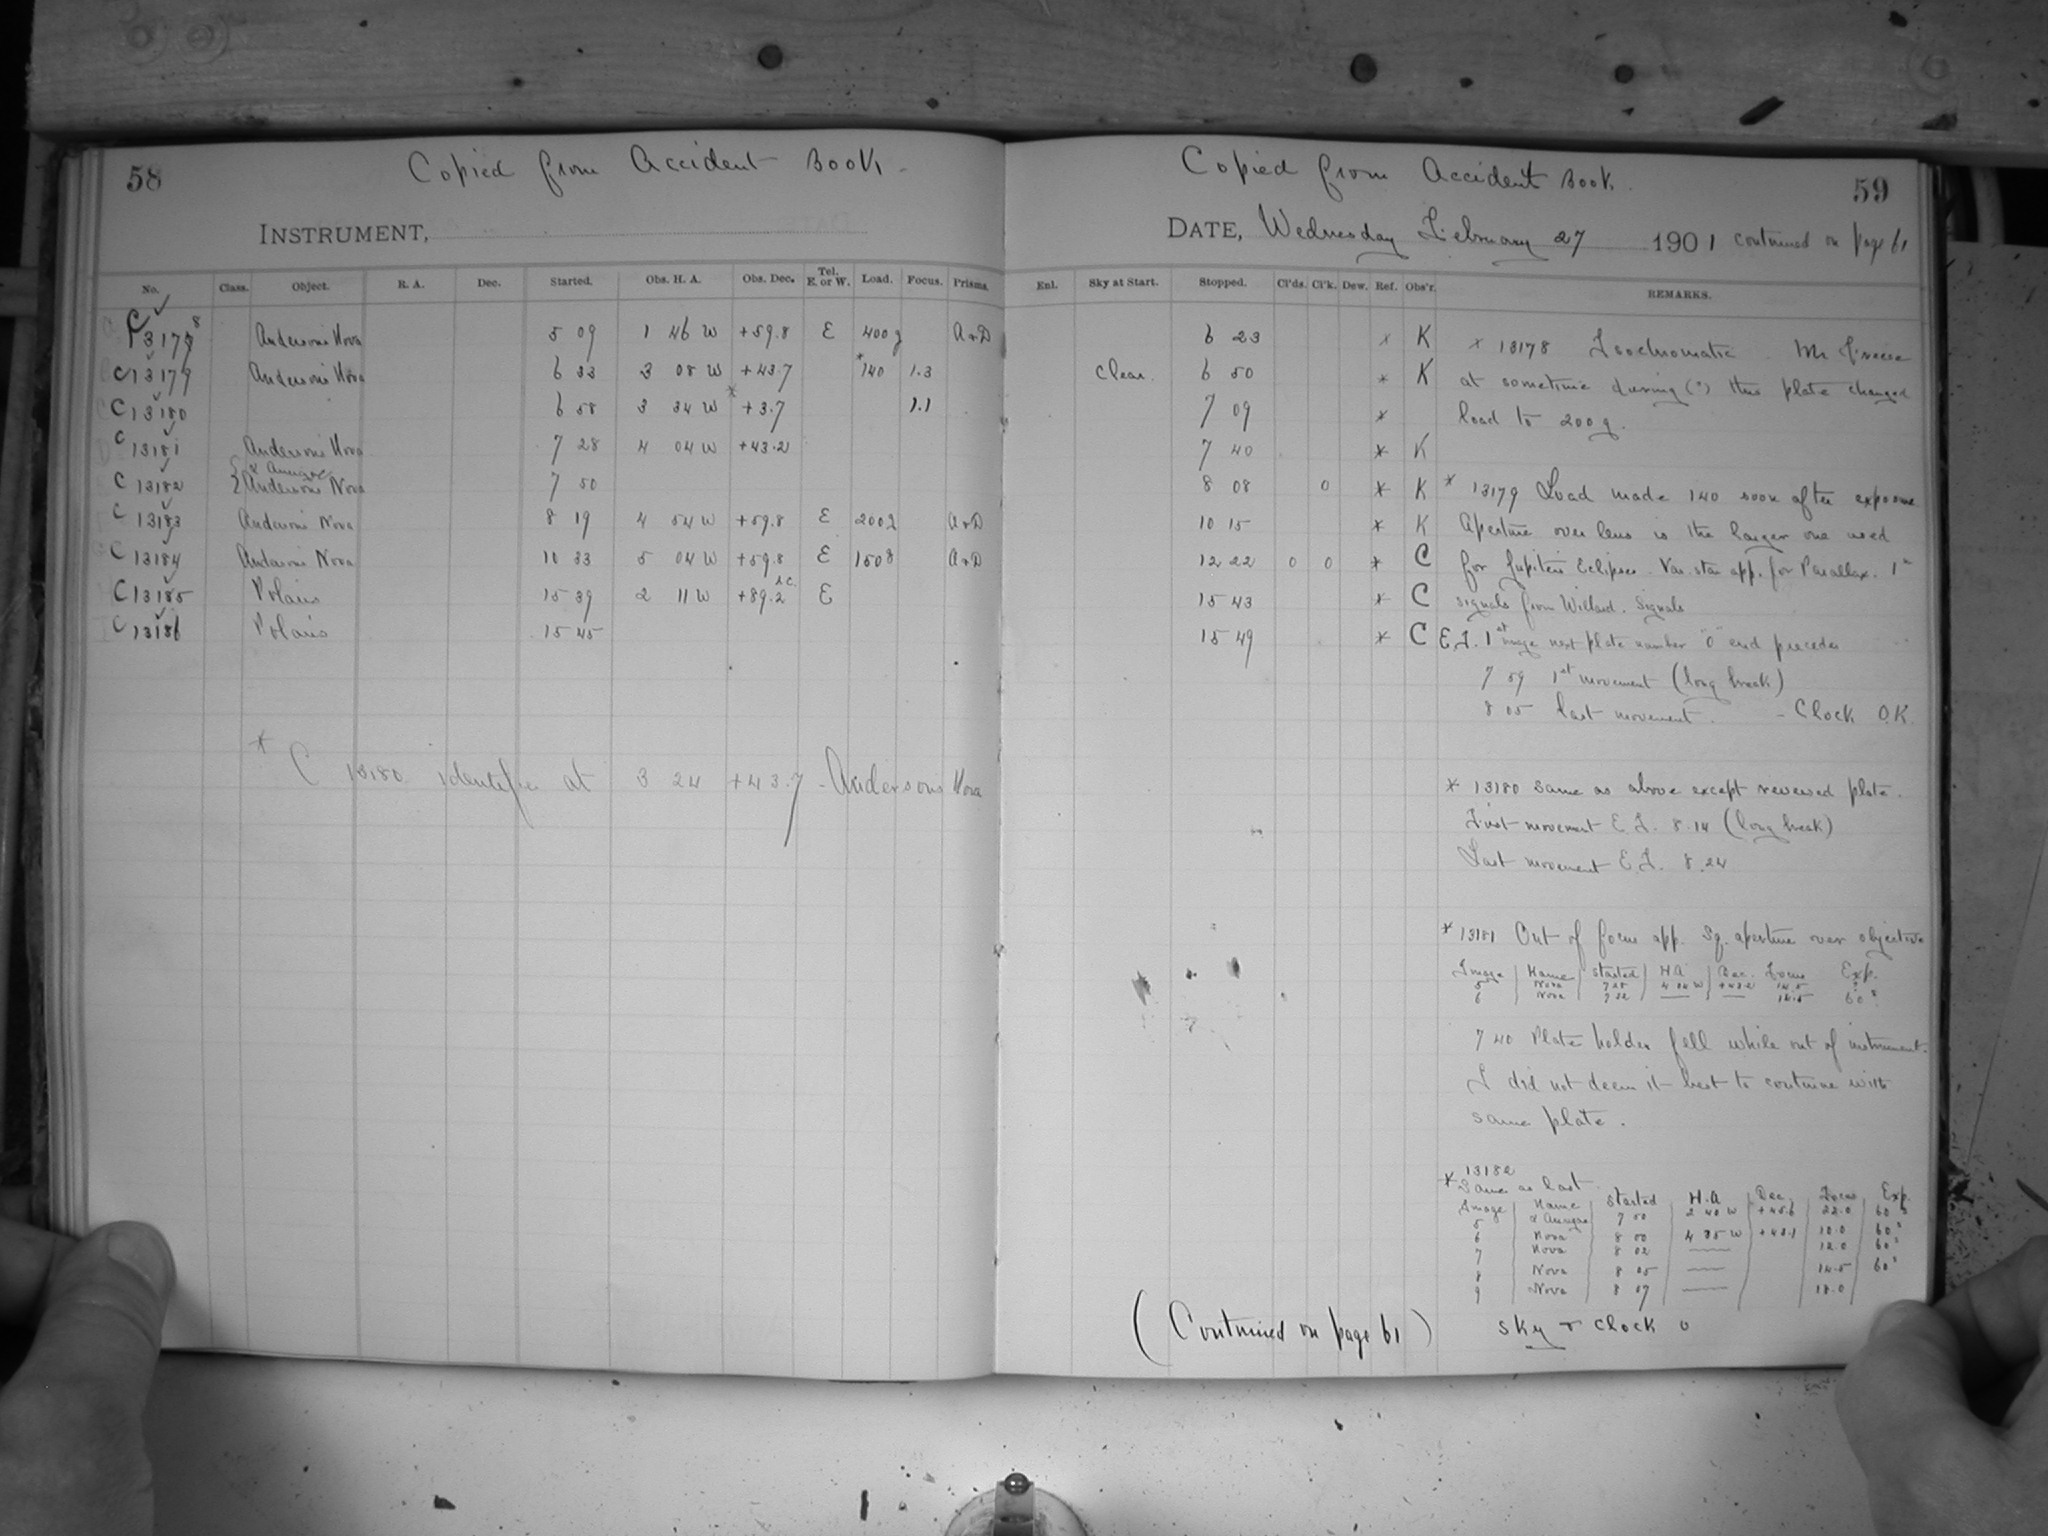 58
Copied from Accident Book.
INSTRUMENT,
No. Class. Object. R. A. Dec. Started. Obs. H. A. Obs. Dec. Tel. E. or W. Load. Focus. Prisms.
C 13178 Andersons Nova 5 09 1 46 W +59.8 E 400g A+D
C 13179 Andersons Nova 6 33 3 08 W +43.7 *140 1.3
C 13180 6 58 3 34 W *+3.7 1.1
C 13181 Andersons Nova 7 28 4 04 W +43.2
C 13182 { α Aurigae Andersons Nova 7 50
C 13183 Andersons Nova 8 19 4 54 W +59.8 E 200g A+D
C 13184 Andersons Nova 10 33 5 04 W +59.8 E 150g A+D
C 13185 Polaris 15 39 2 11 W +89.2 E
C 13186 Polaris 15 45
* C 13180 identifies at 3 24 +43.7 - Andersons Nova
Copied from Accident Book.
59
DATE, Wednesday February 27 1901 continued on page 61
Enl. Sky at Start. Stopped. Cl'ds. Cl'k. Dew. Ref. Obs'r. REMARKS.
6 23 * K
Clear. 6 50 * K
7 09 *
7 40 * K
8 08 0 * K
10 15 * K
12 22 0 0 * C
15 43 * C
15 49 * C
* 13178 Isochromatic. Mr
at sometime during (?) this plate changed
load to 200g.
* 13179 Load made 140 soon after exposure
Aperture over lens is the larger one used
for Jupiter's Eclipses. Var. star app. for Parallax. 1st
signals from Willard. Signals
E.T. 1st image next plate number "0" end precedes
7 59 1st movement (long break)
8 05 last movement. - Clock O.K.
* 13180 Same as above except reversed plate.
First movement E.T. 8.14 (long break)
Last movement E.T. 8.24
* 13181 Out of focus app. Sq. aperture over objective
Image Name Started H.A Dec. Focus Exp.
5 Nova 7 28 4 04 W +43.2 14.5 ?
6 Nova 7 32 — — 14.5 60s
7 40 Plate holder fell while out of instrument.
I did not deem it best to continue with
same plate.
* 13182
Same as last
Image Name Started H.A Dec. Focus Exp.
5 α Aurigae 7 50 2 40 W +45.6 22.0 60s
6 Nova 8 00 4 35 W +43.1 10.0 60s
7 Nova 8 02 — 12.0 60s
8 Nova 8 05 — 14.5 60s
9 Nova 8 07 — 18.0
Sky + Clock 0
(Continued on page 61)